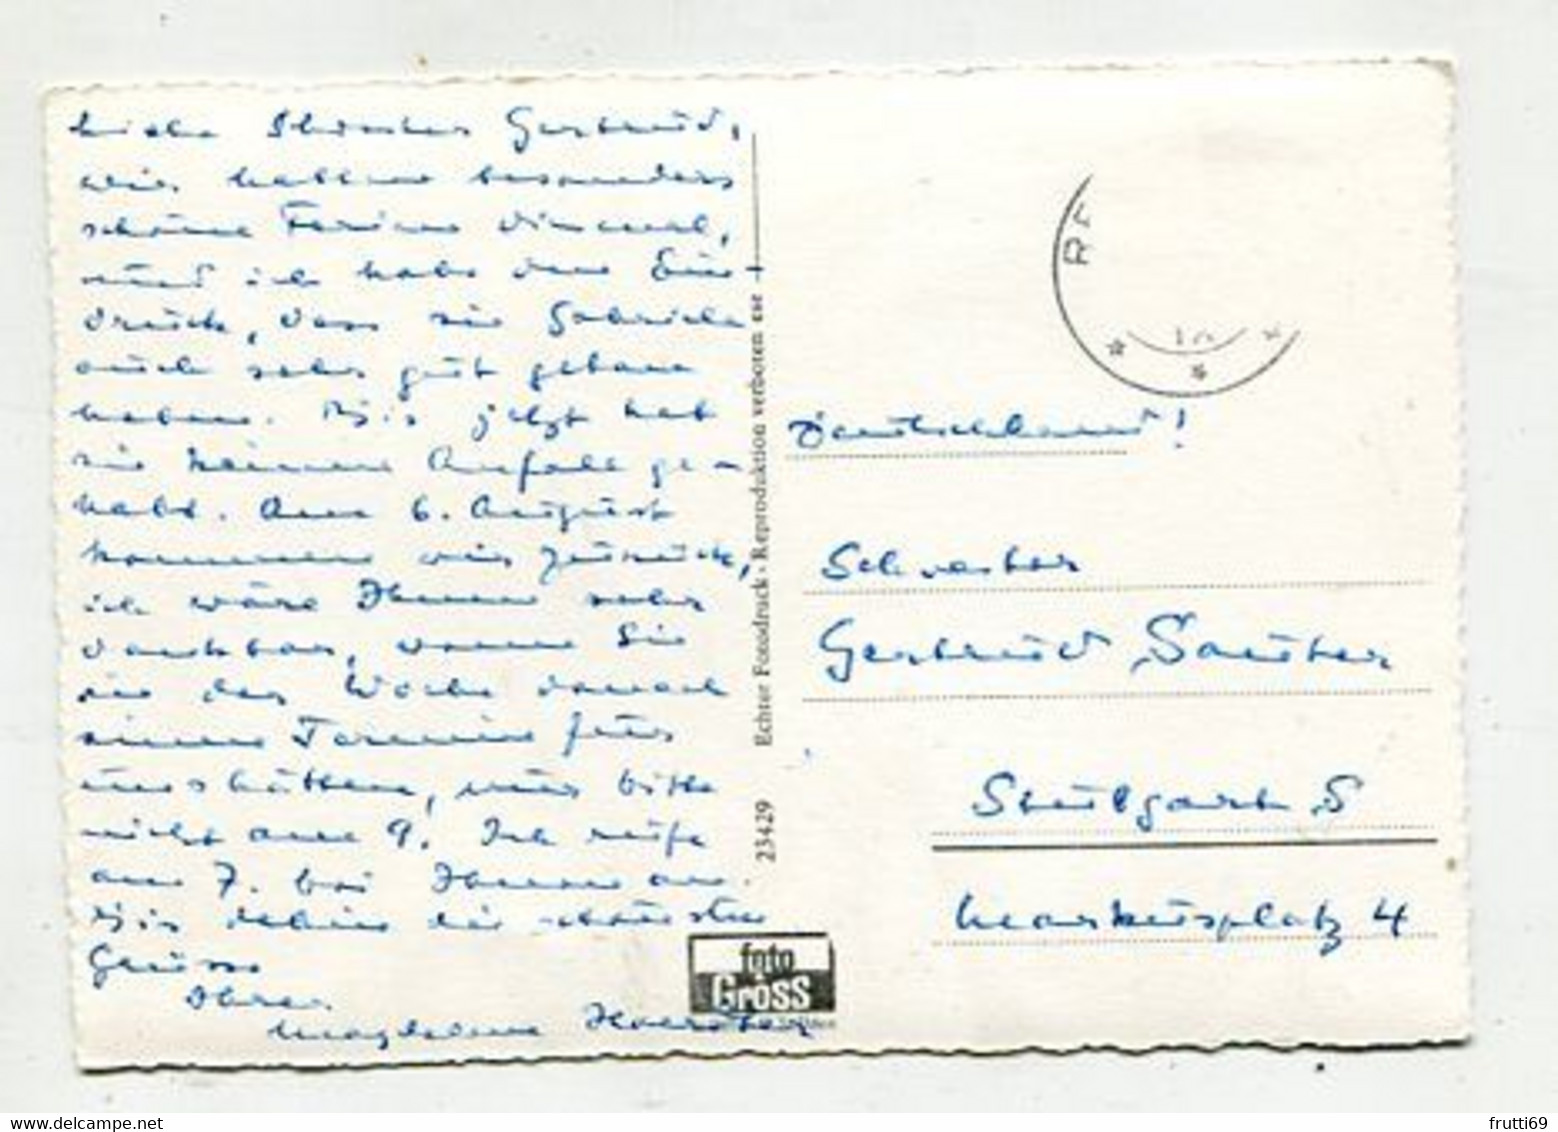 Liebe Schwester Gertrud,
wir hatten besonders
schöne Ferien diesmal,
und ich habe den Ein-
druck, dass sie Gabriele
auch sehr gut getan
haben. Bis jetzt hat
sie keinen Anfall ge-
habt. Am 6. August
kommen wir zurück,
ich wäre Ihnen sehr
dankbar, wenn Sie
in der Woche danach
einen Termin für
uns hätten, nur bitte
nicht am 9. Ich rufe
am 7. bei Ihnen an.
Bis dahin die schönsten
Grüsse
Ihre
Magdalena
Echter Fotodruck - Reproduktion verboten
23429
foto
Gross
RA
Deutschland!
Schwester
Gertrud Sauter
Stuttgart S
Markusplatz 4
frutti69